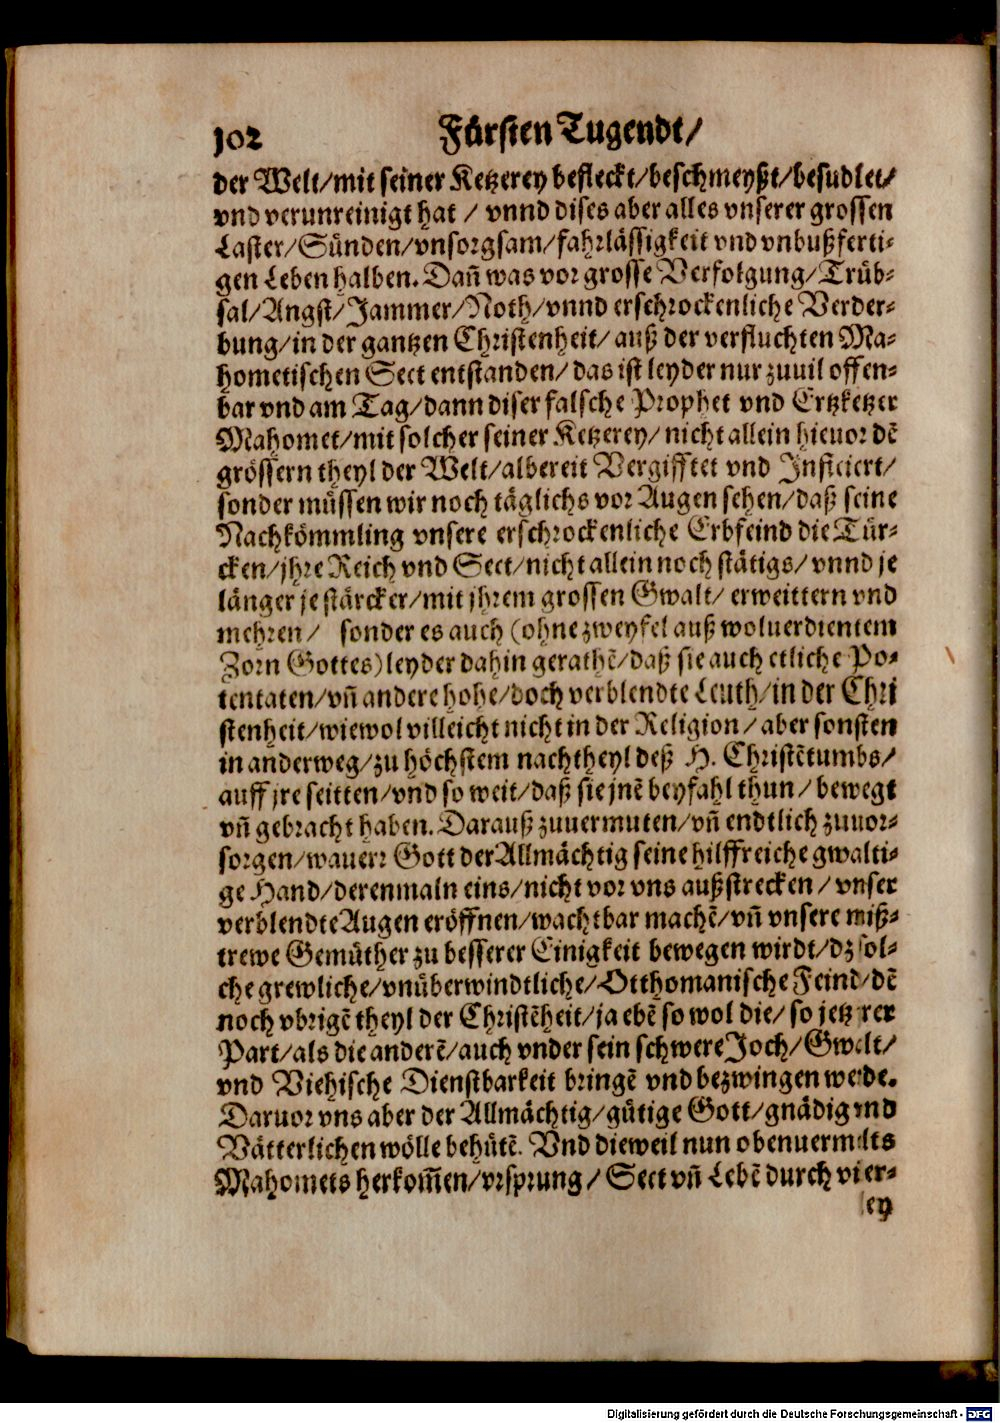 102 Fürsten Tugendt/
der Welt/mit seiner Ketzerey befleckt/beschmeyßt/besudlet/
vnd verunreinigt hat / vnnd dises aber alles vnserer grossen
Laster/Sünden/vnsorgsam/fahrlässigkeit vnd vnbußferti-
gen Leben halben. Dañ was vor grosse Verfolgung/Trüb-
sal/Angst/Jammer/Noth/vnnd erschrockenliche Verder-
bung/in der gantzen Christenheit/ auß der verfluchten Ma-
hometischen Sect entstanden/ das ist leyder nur zuuil offen-
bar vnd am Tag/dann diser falsche Prophet vnd Ertzketzer
Mahomet/mit solcher seiner Ketzerey/ nicht allein hieuor dē
grössern theyl der Welt/albereit Vergifftet vnd Inficiert/
sonder müssen wir noch täglichs vor Augen sehen/daß seine
Nachkömmling vnsere erschrockenliche Erbfeind die Tür-
cken/jhre Reich vnd Sect/nicht allein noch stätigs/ vnnd je
länger je stärcker/mit jhrem grossen Gwalt/ erweittern vnd
mehren/ sonder es auch (ohne zweyfel auß woluerdientem
Zorn Gottes)leyder dahin gerathē/daß sie auch etliche Po-
tentaten/vñ andere hohe/doch verblendte Leuth/in der Chri
stenheit/wiewol villeicht nicht in der Religion/ aber sonsten
in anderweg/zu höchstem nachtheyl deß H. Christētumbs/
auff jre seitten/vnd so weit/daß sie jnē beyfahl thun/ bewegt
vñ gebracht haben. Darauß zuuermuten/vñ endtlich zuuor-
sorgen/wauerr Gott der Allmächtig seine hilffreiche gwalti-
ge Hand/derenmaln eins/nicht vor vns außstrecken / vnser
verblendte Augen eröffnen/wachtbar machē/vñ vnsere miß-
trewe Gemüther zu besserer Einigkeit bewegen wirdt/dz sol-
che grewliche/vnüberwindtliche/Otthomanische Feind/dē
noch vbrigē theyl der Christēheit/ja ebē so wol die/ so jetz rer
Part/als die anderē/auch vnder sein schwere Joch/Gwalt/
vnd Viehische Dienstbarkeit bringē vnd bezwingen werde.
Daruor vns aber der Allmächtig/gütige Gott/gnädig vnd
Vätterlichen wölle behütē. Vnd dieweil nun obenuermelts
Mahomets herkom̃en/vrsprung/ Sect vñ Lebē durch vier-
ley
Digitalisierung gefördert durch die Deutsche Forschungsgemeinschaft - DFG